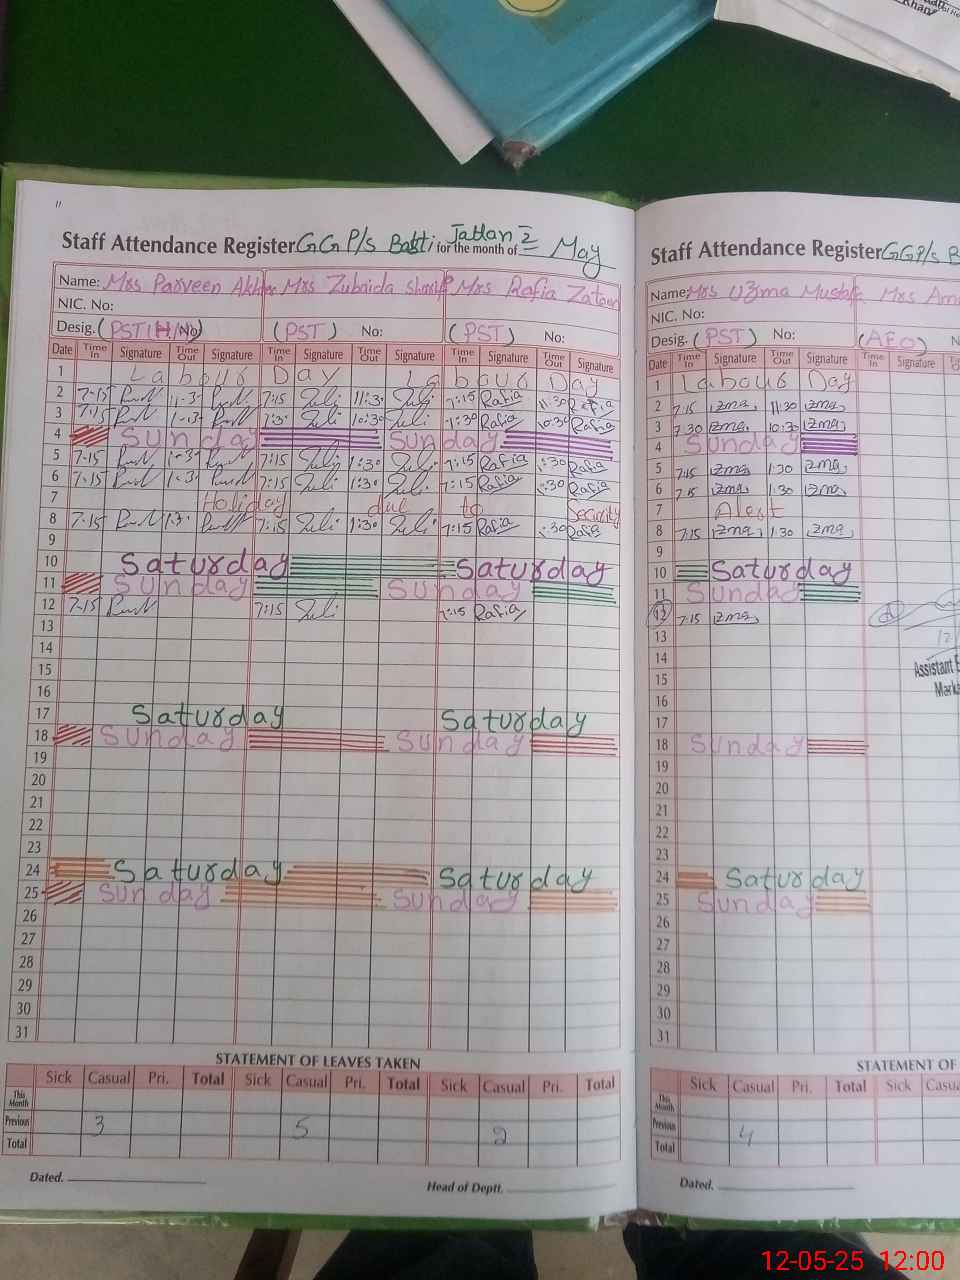 Khan
Staff Attendance Register GG P/s Bakti Jatlan 2 for the month of May
Name: Mrs Parveen Akhtar Mrs Zubaida Sharif Mrs Rafia Zataon
NIC. No:
Desig. (PST/H/No) (PST) No: (PST) No:
Date Time In Signature Time Out Signature Time In Signature Time Out Signature Time In Signature Time Out Signature
1 Labour Day Labour Day
2 7-15 1-3 7:15 11:30 7:15 Rafia 11:30 Rafia
3 7:15 1-3 7:30 10:30 7:30 Rafia 10:30 Rafia
4 Sunday Sunday
5 7-15 1-3 7:15 1:30 7:15 Rafia 1:30 Rafia
6 7-15 1-3 7:15 1:30 7:15 Rafia 1:30 Rafia
7 Holiday due to Security
8 7-15 1:3 7:15 1:30 7:15 Rafia 1:30 Rafia
9
10 Saturday Saturday
11 Sunday Sunday
12 7-15 7:15 7:15 Rafia
13
14
15
16
17 Saturday Saturday
18 Sunday Sunday
19
20
21
22
23
24 Saturday Saturday
25 Sunday Sunday
26
27
28
29
30
31
STATEMENT OF LEAVES TAKEN
Sick Casual Pri. Total Sick Casual Pri. Total Sick Casual Pri. Total
This Month
Previous 3 5 2
Total
Dated. Head of Deptt.
Staff Attendance Register GGP/s B
Name: Mrs Uzma Mustafa Mrs Am
NIC. No:
Desig. (PST) No: (AEO)
Date Time In Signature Time Out Signature Time In Signature
1 Labour Day
2 7:15 Uzma 11:30 Uzma
3 7:30 Uzma 10:30 Uzma
4 Sunday
5 7:15 Uzma 1:30 Uzma
6 7:15 Uzma 1:30 Uzma
7 Alert
8 7:15 Uzma 1:30 Uzma
9
10 Saturday
11 Sunday
12 7:15 Uzma
13 12
14 Assistant E
15 Marka
16
17
18 Sunday
19
20
21
22
23
24 Saturday
25 Sunday
26
27
28
29
30
31
STATEMENT OF
Sick Casual Pri. Total Sick Casu
This Month
Previous 4
Total
Dated.
12-05-25 12:00